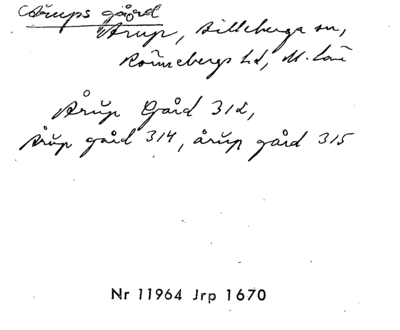 Årups gård
Årup, Silleberga sn,
Rönnebergs hd, M. län
Årŭp Gård 312,
Årŭp gård 314, årŭp gård 315
Nr 11964 Jrp 1670